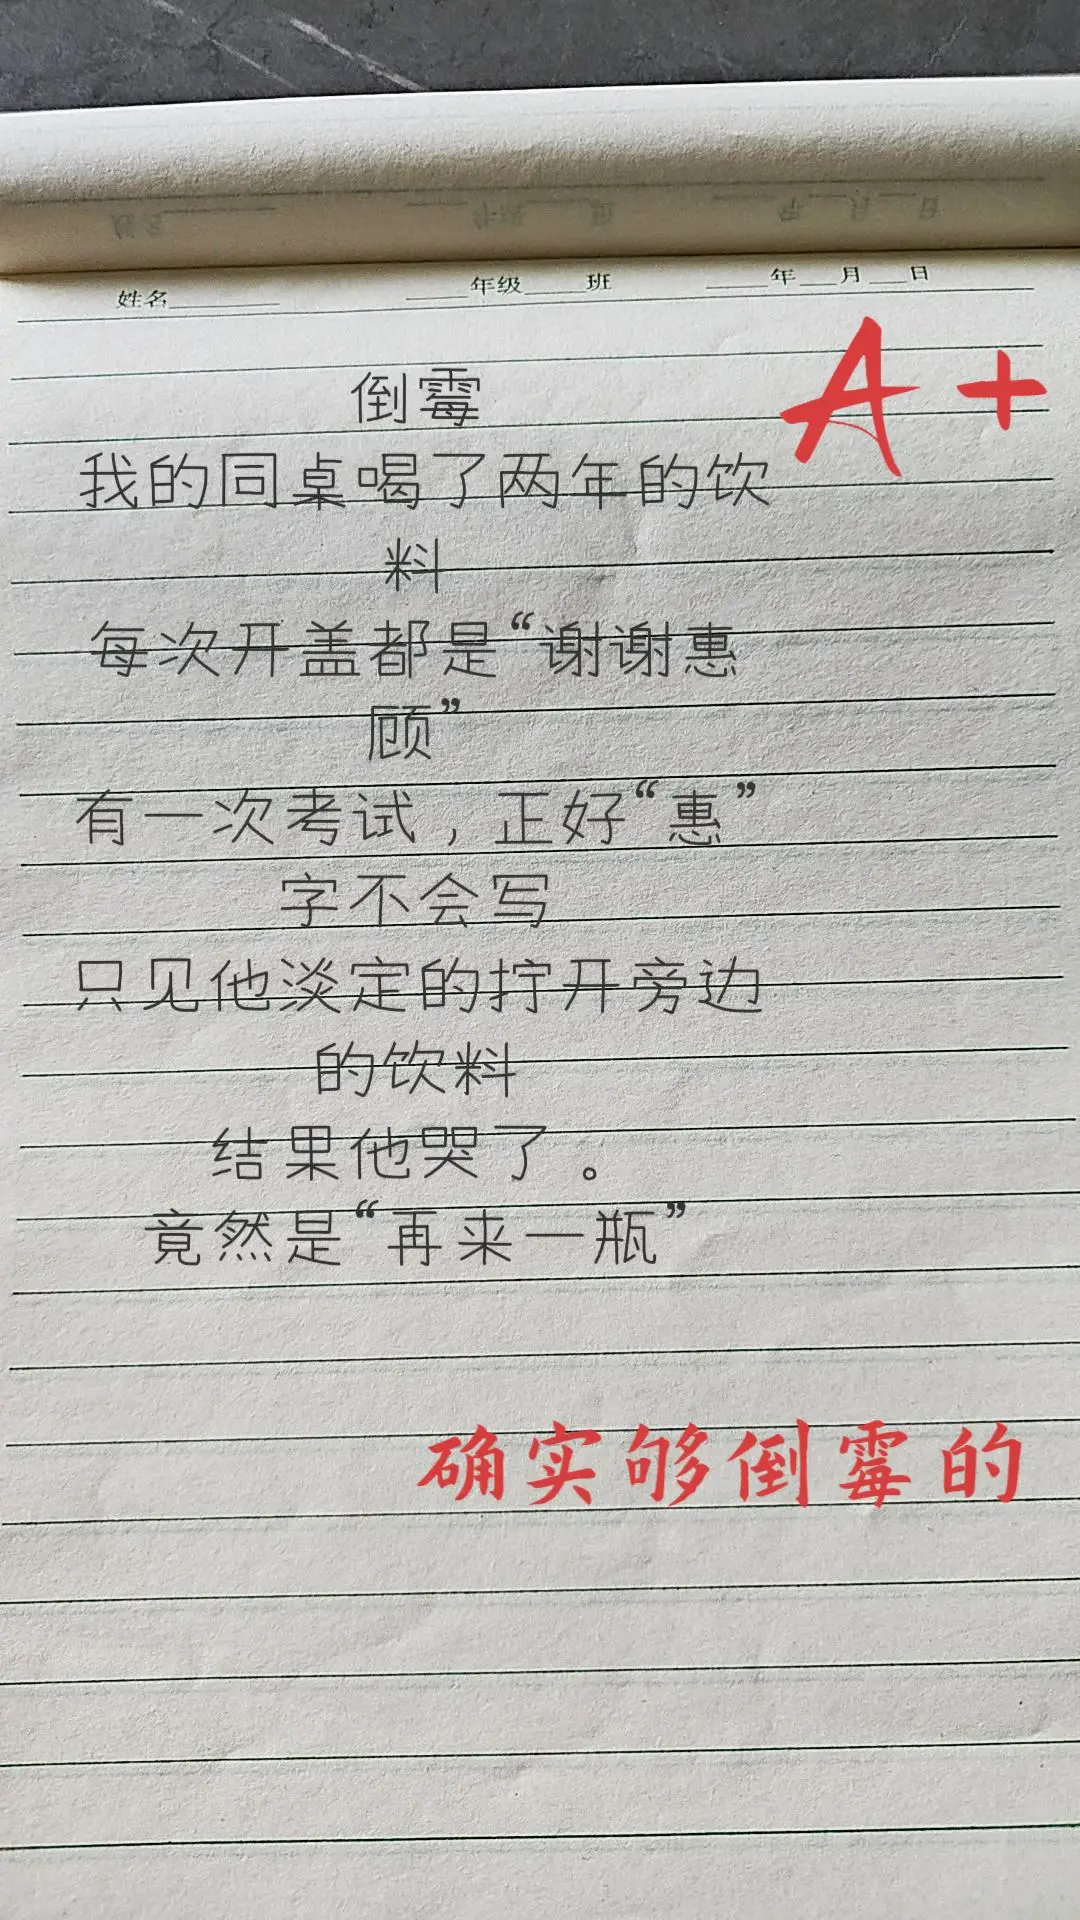 姓名________ ____年级____班 ____年___月___日
倒霉
A+
我的同桌喝了两年的饮
料
每次开盖都是“谢谢惠
顾”
有一次考试，正好“惠”
字不会写
只见他淡定的拧开旁边
的饮料
结果他哭了。
竟然是“再来一瓶”
确实够倒霉的